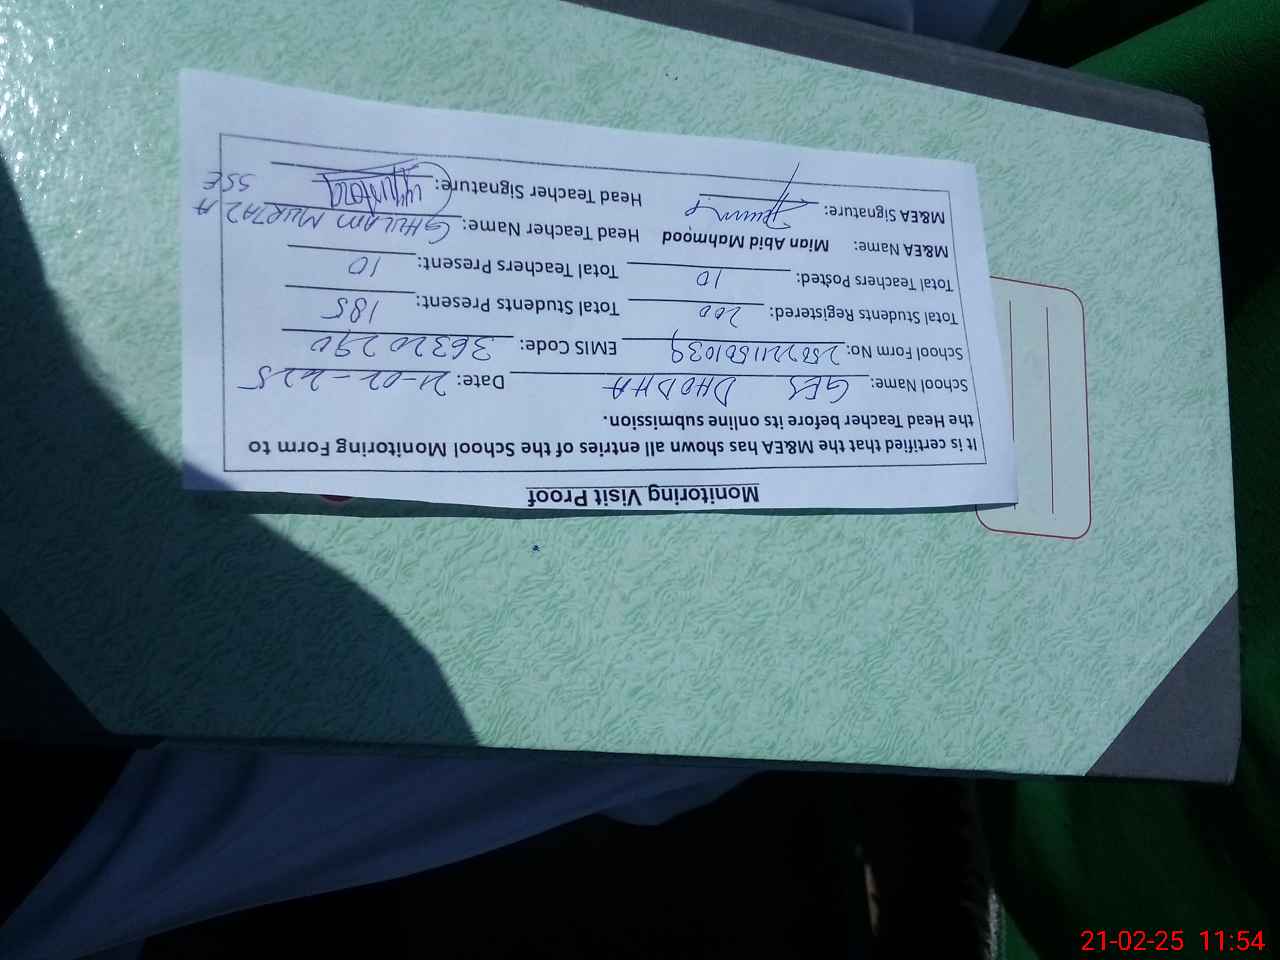 Monitoring Visit Proof
It is certified that the M&EA has shown all entries of the School Monitoring Form to
the Head Teacher before its online submission.
School Name: GES DHODHA Date: 21-02-2025
School Form No: EMIS Code: 36320290
Total Students Registered: 200 Total Students Present: 185
Total Teachers Posted: 10 Total Teachers Present: 10
M&EA Name: Mian Abid Mahmood Head Teacher Name: GHULAM MURTAZA
M&EA Signature: Head Teacher Signature: SSE
21-02-25 11:54